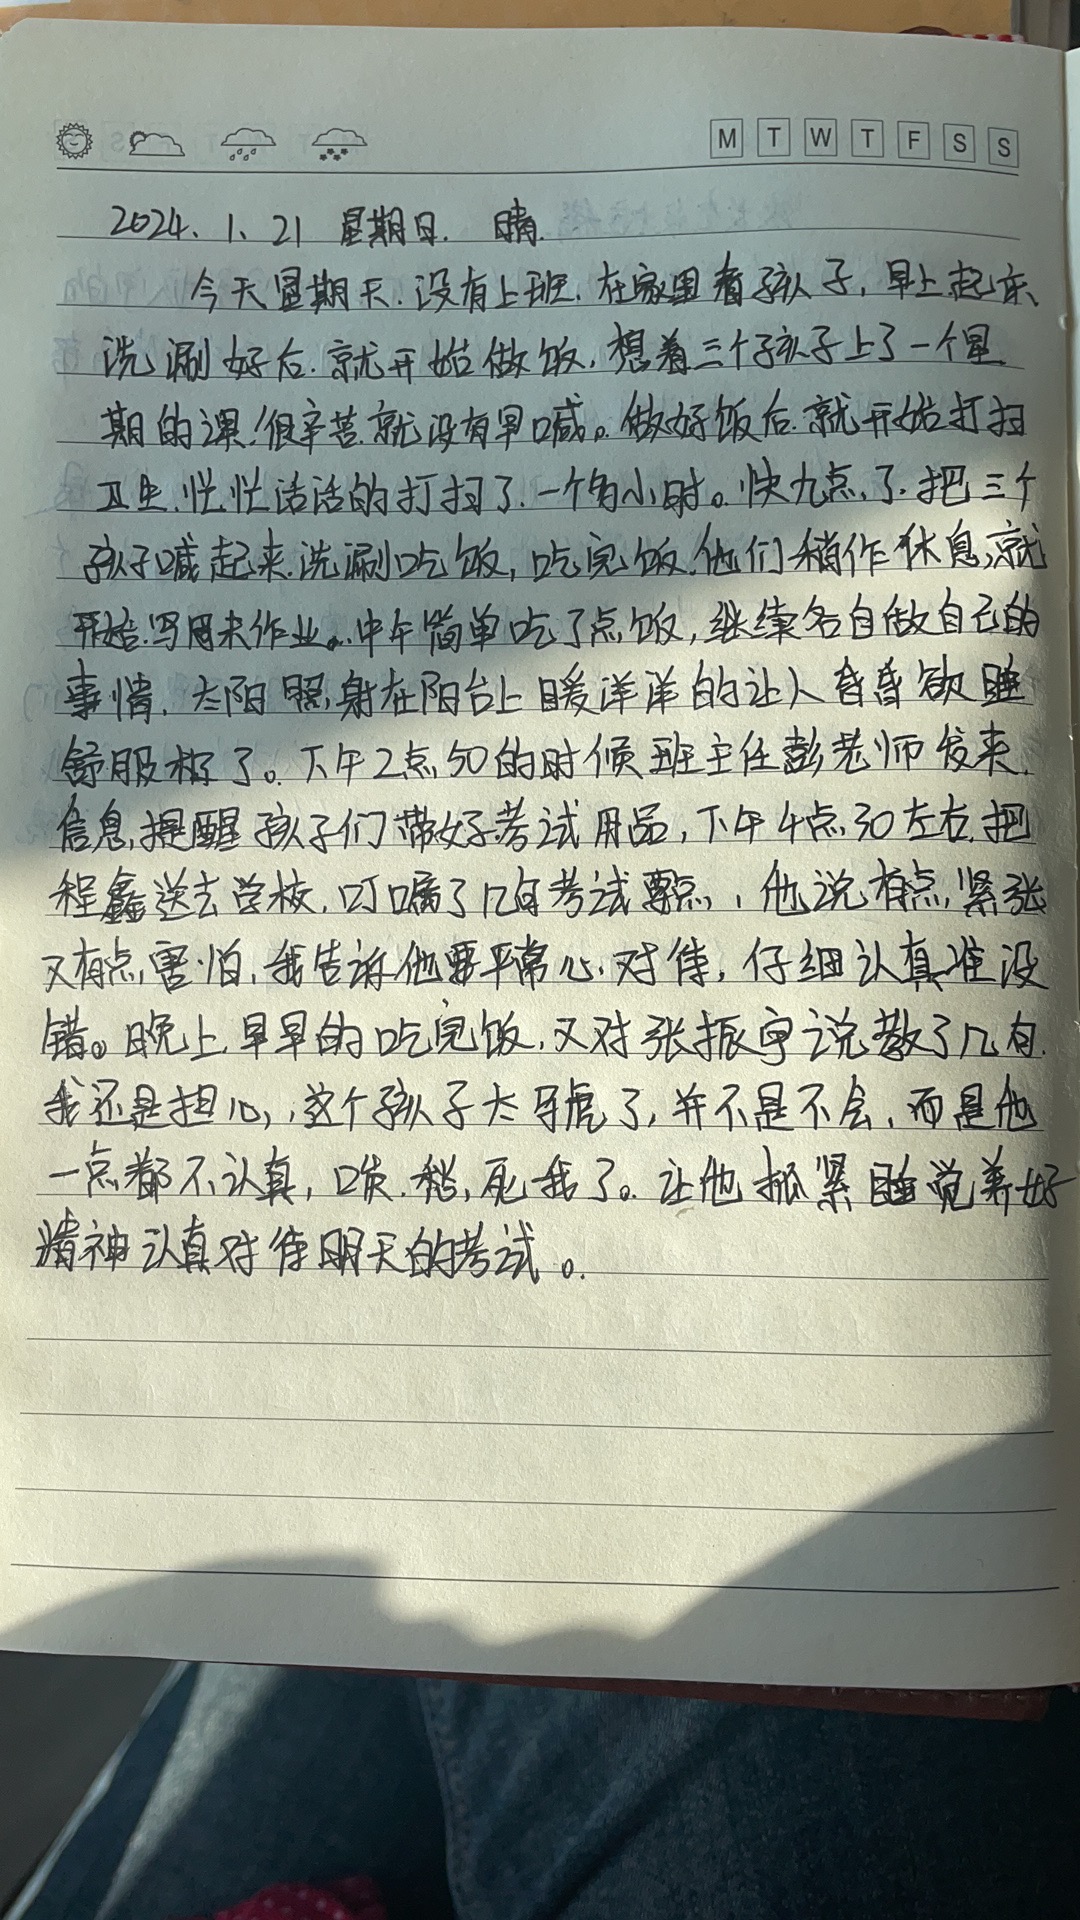 M T W T F S S
2024.1.21 星期日. 晴.
今天星期天.没有上班.在家里看孩子,早上起床
洗涮好后.就开始做饭,想着三个孩子上了一个星
期的课!很辛苦.就没有早喊。做好饭后.就开始打扫
卫生.忙忙活活的打扫了.一个多小时。快九点了.把三个
孩子喊起来.洗涮吃饭,吃完饭.他们稍作休息,就
开始.写周末作业。中午简单吃了点饭,继续各自做自己的
事情.太阳照射在阳台上暖洋洋的让人昏昏欲睡
舒服极了。下午2点50的时候班主任彭老师发来.
信息,提醒孩子们带好考试用品,下午4点30左右.把
程鑫送去学校.叮嘱了几句考试要点,他说有点紧张
又有点害怕,我告诉他要平常心.对待,仔细认真准没
错。晚上早早的吃完饭,又对张振宇说教了几句.
我还是担心,这个孩子太牙虎了,并不是不会.而是他
一点都不认真,唉.愁死我了。让他抓紧睡觉养好
精神认真对待明天的考试。